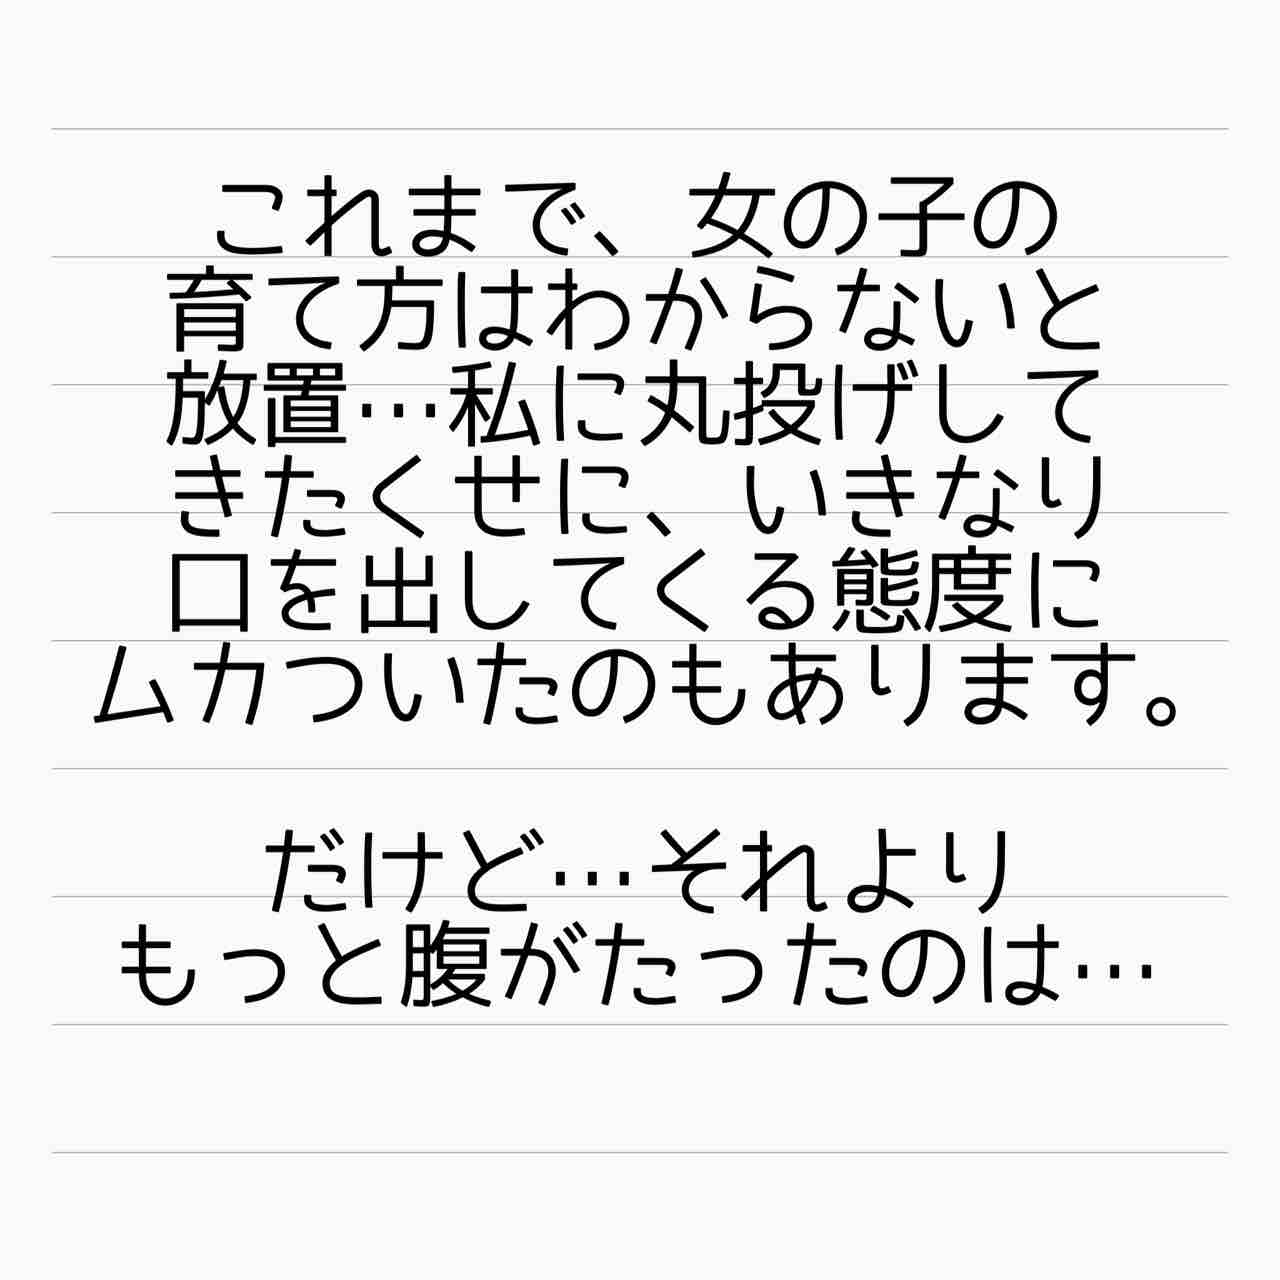 これまで、女の子の
育て方はわからないと
放置…私に丸投げして
きたくせに、いきなり
口を出してくる態度に
ムカついたのもあります。
だけど…それより
もっと腹がたったのは…